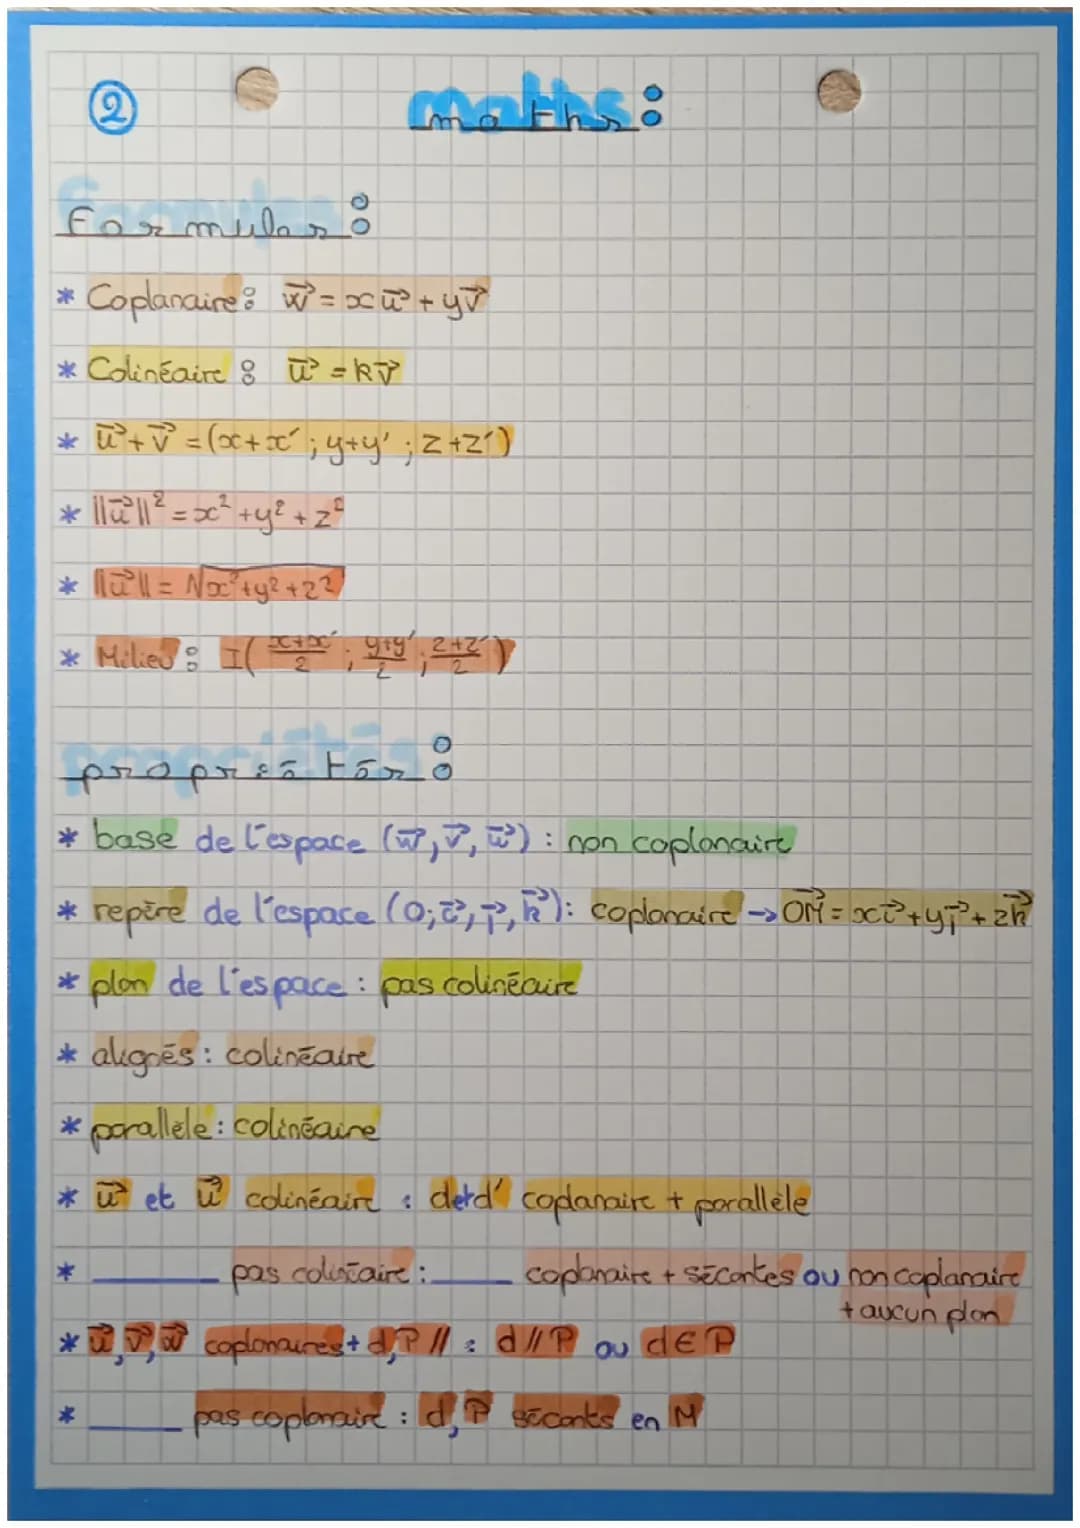 ②
maths:
formules:
* Coplanaire: w⃗ = xu⃗ + yv⃗
* Colinéaire: u⃗ = kv⃗
* u⃗+v⃗ = (x+x' ; y+y' ; z+z')
* ||u⃗||² = x² + y² + z²
* ||u⃗|| = √x²+y²+z²
* Milieu: I( x+x'/2 ; y+y'/2 ; z+z'/2 )
propriétés:
* base de l'espace (w⃗, v⃗, u⃗) : non coplanaire
* repère de l'espace (O; i⃗, j⃗, k⃗): coplanaire → OM⃗ = xi⃗ + yj⃗ + zk⃗
* plan de l'espace : pas colinéaire
* alignés : colinéaire
* parallèle : colinéaire
* u⃗ et u⃗' colinéaire : d et d' coplanaire + parallèle
* ____ pas colinéaire : ____ coplanaire + sécantes ou non coplanaire
+ aucun plan
* u⃗, v⃗, w⃗ coplanaires + d, P // : d // P ou d ∈ P
* ____ pas coplanaire : d, P sécants en M